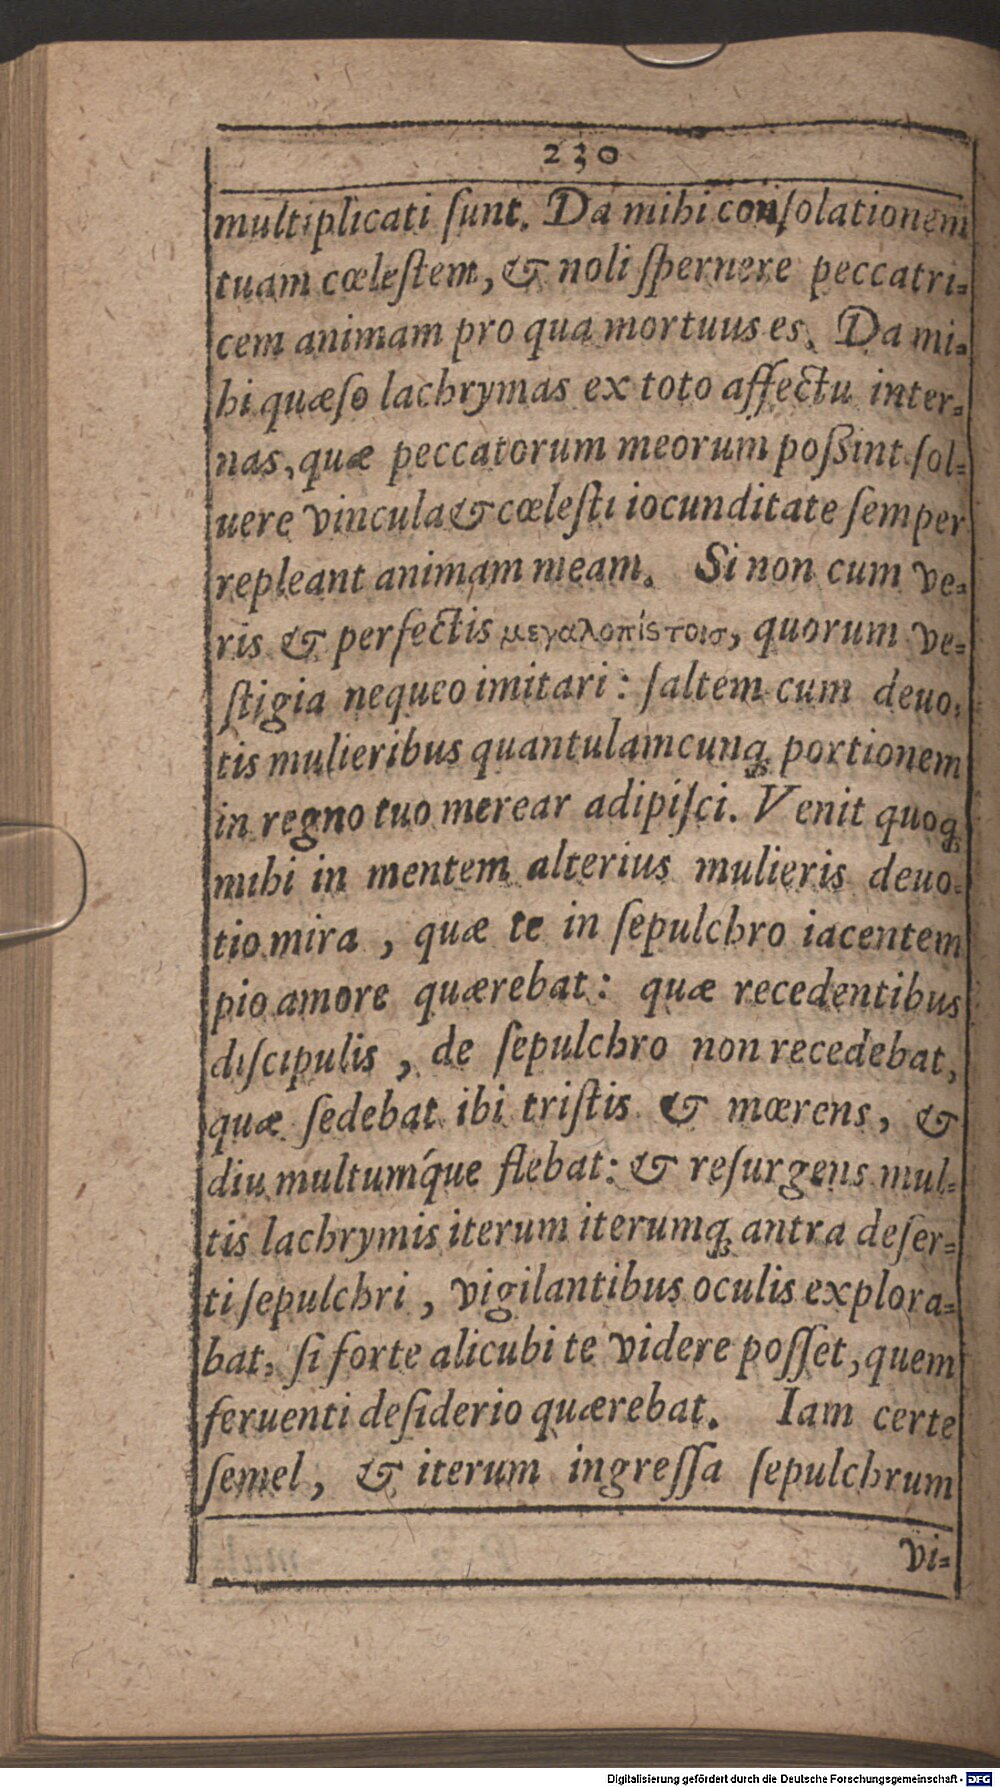 230
multiplicati ſunt. Da mihi conſolationem
tuam cœleſtem, & noli ſpernere peccatri-
cem animam pro qua mortuus es. Da mi-
hi quæſo lachrymas ex toto affectu inter-
nas, quæ peccatorum meorum poßint ſol-
uere vincula & cœleſti iocunditate ſemper
repleant animam meam. Si non cum ve-
ris & perfectis μεγαλοπίϛτοισ, quorum ve-
ſtigia nequeo imitari: ſaltem cum deuo-
tis mulieribus quantulamcunq; portionem
in regno tuo merear adipiſci. Venit quoq;
mihi in mentem alterius mulieris deuo-
tio mira, quæ te in ſepulchro iacentem
pio amore quærebat: quæ recedentibus
diſcipulis, de ſepulchro non recedebat,
quæ ſedebat ibi triſtis & mœrens, &
diu multumq́ue flebat: & reſurgens mul-
tis lachrymis iterum iterumq; antra deſer-
ti ſepulchri, vigilantibus oculis explora-
bat, ſi forte alicubi te videre poſſet, quem
feruenti deſiderio quærebat. Iam certe
ſemel, & iterum ingreſſa ſepulchrum
vi-
Digitalisierung gefördert durch die Deutsche Forschungsgemeinschaft - DFG